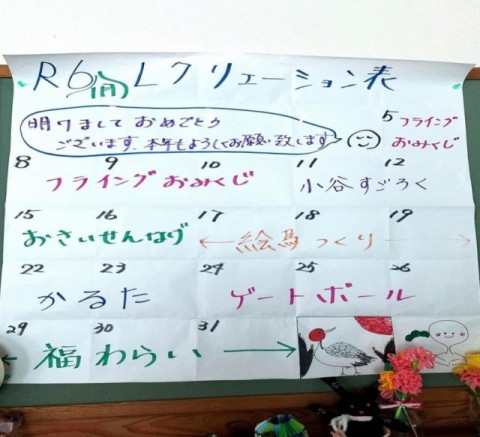 R6 1月 レクリェーション表
明けまして おめでとう
ございます。本年もよろしくお願い致します
5 フライング
おみくじ
8 9 10 11 12
フライング おみくじ 小谷すごろく
15 16 17 18 19
おさいせんなげ ←絵馬つくり→
22 23 24 25 26
かるた ゲートボール
29 30 31
← 福わらい →